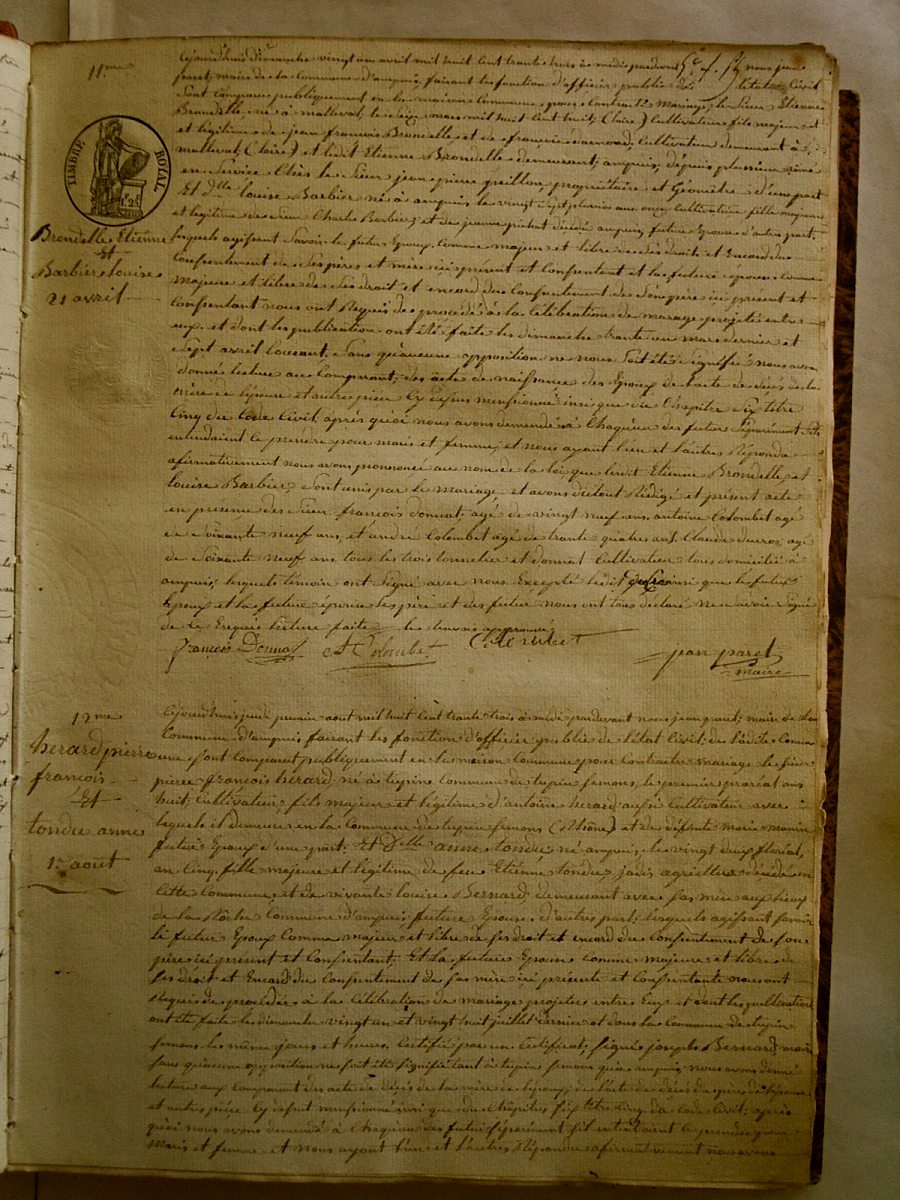 11me
TIMBRE ROYAL
Brondelle Etienne
Et
Barbier louise
21 avril
Cejourdhuis dimanche vingt un avril mil huit Cent trante trois à midis pardevant nous jean
paret, maire de la Commune d'ampuis, faisant les fonction d'officier public de l'etat Civil
Sont Comparus publiquement en la maison Commune pour Contracter Mariage, le Sieur Etienne
Brondelle, né à malleval, le mars mil huit Cent huit, (Loire) Cultivateur, fils majeur et
et légitime de jean françois Brondelle, et de françoise darnond, Cultivateur demeurant à
malleval, (Loire) et ledit Etienne Brondelle demeurant, ampuis, depuis plusieur anné
en Service Chès le Sieur jean pierre freillon, propriétaire et Géomètre d'une part
Et dlle louise Barbier né à ampuis le vingt Sept pluviose an onze Cultivatrice fille majeure
et légitime de Sieur Charle Barbier, et de jeanne décédé ampuis, future Epouse d'autre part,
lesquels agissant Savoir le futur Epoux Comme majeur et libre de Ses droits et Encord du
Consentement de Ses père et mère ici présent et Consentent et la future épouse Comme
majeure et libre de Ses droit et encord du Consentement de Son père ici présent et
Consentant nous ont Requis de procédé à la Célébration de mariage projeté entre
eux et dont les publication ont été faite les dimanche trante un mars dernier et
Sept avril Courant, Sans qu'aucune opposition ne nous Soit été Signifié nous avon
donné lecture au Comparant, des acte de naissance des Epoux de l'acte de décès de la
mère de l'épouse et autres pièce Cy dessus mensionné insi que du Chapitre Six titre
Cinq du Code Civil, après quoi nous avons demandé à Chaqu'un des futurs Séparément Sils
entendaient Ce prendre pour maris et femme, et nous ayant l'un et l'autre Répondu
afirmativement nous avons prononcé au nom de la loi, que ledit Etienne Brondelle, et
louise Barbier, Sont unis par le Mariage, et avons de tout Rédigé et présent acte
en présence des Sieur françois donnat, agé de vingt neuf ans, antoine Colombet agé
de Soixante neuf ans, et andré Colombet agé de trante quatre ans Claude ducros, agé
de Soixante neuf ans tous les trois tonnelier et donnat Cultivateur tous domicilié à
ampuis, lesquels témoin ont Signé avec nous Excepté ledit insi que le futur
Epoux et la future épouse les père et des futur nous ont tous déclaré ne Savoir Signé
de Ce Enquis lecture faite
françois Donnat A Colombet jean paret
maire
12me
herard pierre
françois
Et
tondu anne
1er aout
Cejourdhuis jeudi premier aout mil huit Cent trante trois à midi pardevant nous jean paret, maire de la
Commune d'ampuis faisant les fonction d'officier publié de l'état Civil, de ladite Comm
une Sont comparut publiquement en la maison Commune pour Contracter mariage le Sieur
pierre françois hérard, né à tupins Commune de tupin Semons, le premier prairéal an
huit, Cultivateur, fils majeur et légitime d'antoine herard aussi Cultivateur avec
lequels il Demeure en la Commune de tupin Semons (Rhône) et de défunte marie manin
futur Epoux d'une part; Et Dlle anne tondu né ampuis, le vingt deux floréal
an Cinq, fille majeure et légitime de feu Etienne tondu, jadis agriculteur décédé en
Cette Commune, et de vivante louise Bernard demeurant avec Sas mère aux lieux
de la Roche Commune d'ampuis, future Epouse d'autre part; lesquels agissant Savoir
le futur Epoux Comme majeur et libre de Ses droit et encord du Consentement de Son
père ici présent et Consentant; Et la future Epouse Comme majeure et libre de
Ses droit et Encord du Consentement de Sas mère ici présente et Consentante nous ont
Requis de procédés à la Célébration de mariage projetés entre Eux et dont les publication
ont été faite les dimanche vingt un et vingt huit juillet dernier et dans la Commune de tupin
Semons les même jours et heures, Certifié par un Certificat; Signé joseph Bernard maire
Sans qu'aucune opposition ne Soit été Signifié tant à tupin Semons qu'à ampuis, nous avons donné
lecture aux Comparant des acte de décès de la mère de l'époux, de l'acte de décès du père de l'épouse
et autres pièce Cy dessus mensionné insi que du Chapitre Six titre Cinq du Code Civil; après
quoi nous avons demandé à Chaqu'un des futur Séparément Sil entendaient Ce prendre pour
Maris et femme et nous ayant l'un et l'autre Répondu afirmativement nous avons